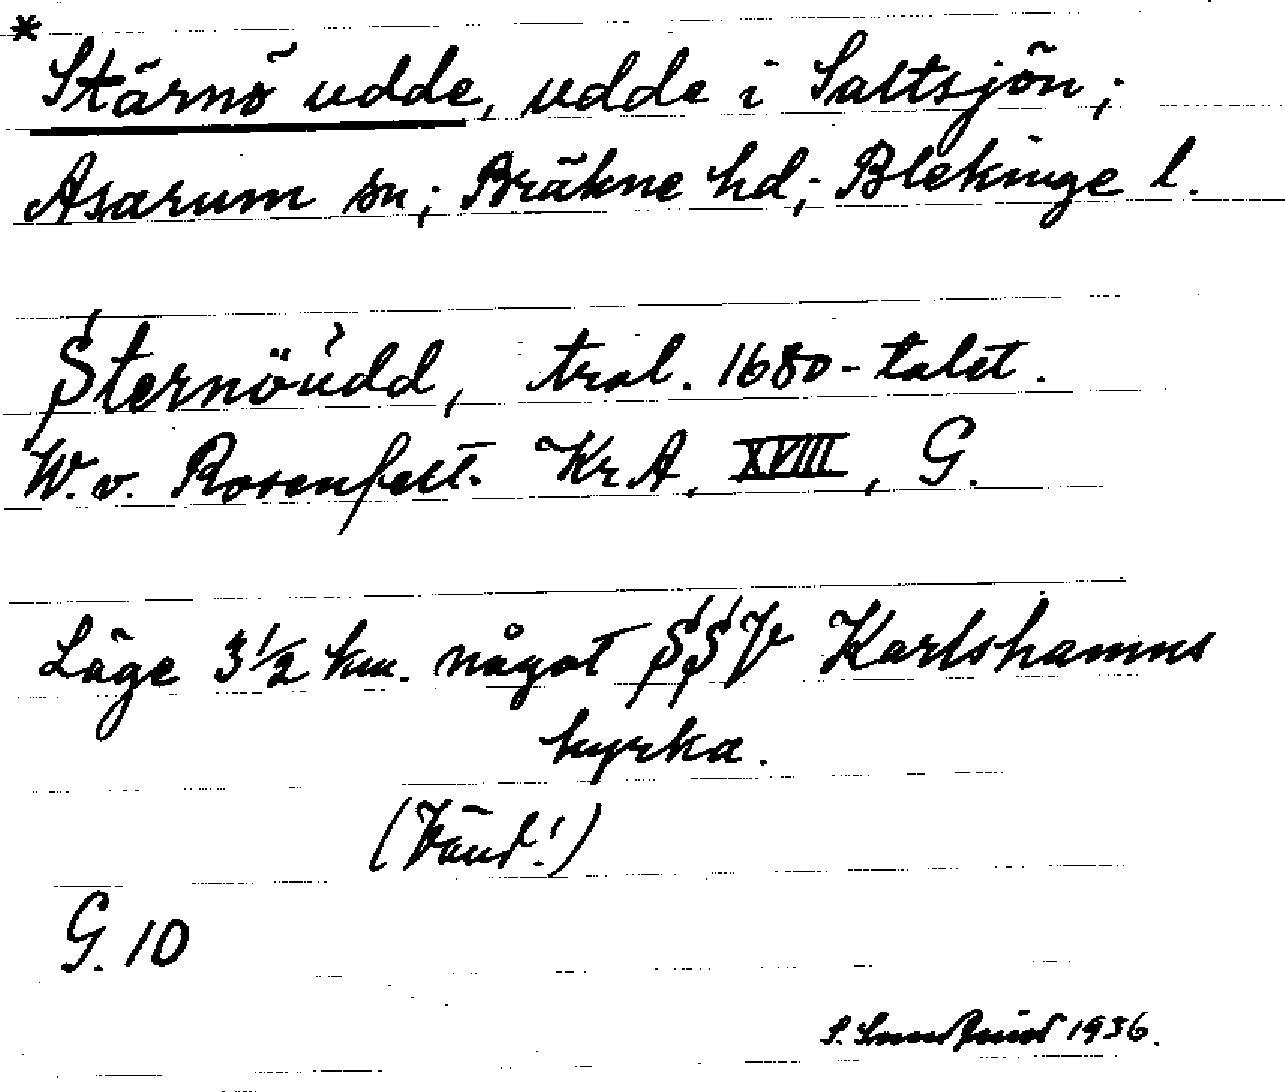 * Stärnö udde, udde i Saltsjön;
Asarum sn; Bräkne hd; Blekinge l.
Sternöüdd, tral. 1680-talet.
W. v. Rosenfelt. Kr A, XVIII, G.
Läge 3 1/2 km. något SSV Karlshamns
kyrka.
(Vänd!)
G. 10
S. 1936.